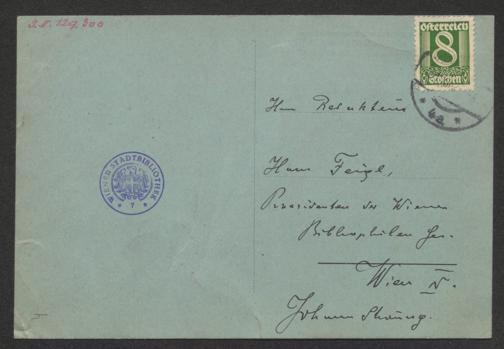 I.N. 129.300
Österreich
8
Groschen
4a
Herrn Redakteur
WIENER STADTBIBLIOTHEK
7
Hans Feigl,
Praesidenten der Wiener
Bibliophilen Ges.
Wien V.
Johann